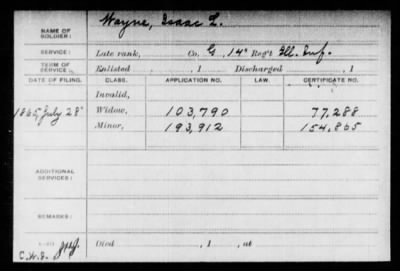 Wayne, Isaac L.
NAME OF SOLDIER:
SERVICE: Late rank, Co. G, 14" Reg't Ill. Inf.
TERM OF SERVICE: Enlisted , 1 Discharged , 1
DATE OF FILING. CLASS. APPLICATION NO. LAW. CERTIFICATE NO.
Invalid,
1865, July 28" Widow, 103,790 77,288
Minor, 193,912 154,865
ADDITIONAL SERVICES:
REMARKS:
Died , 1 , at